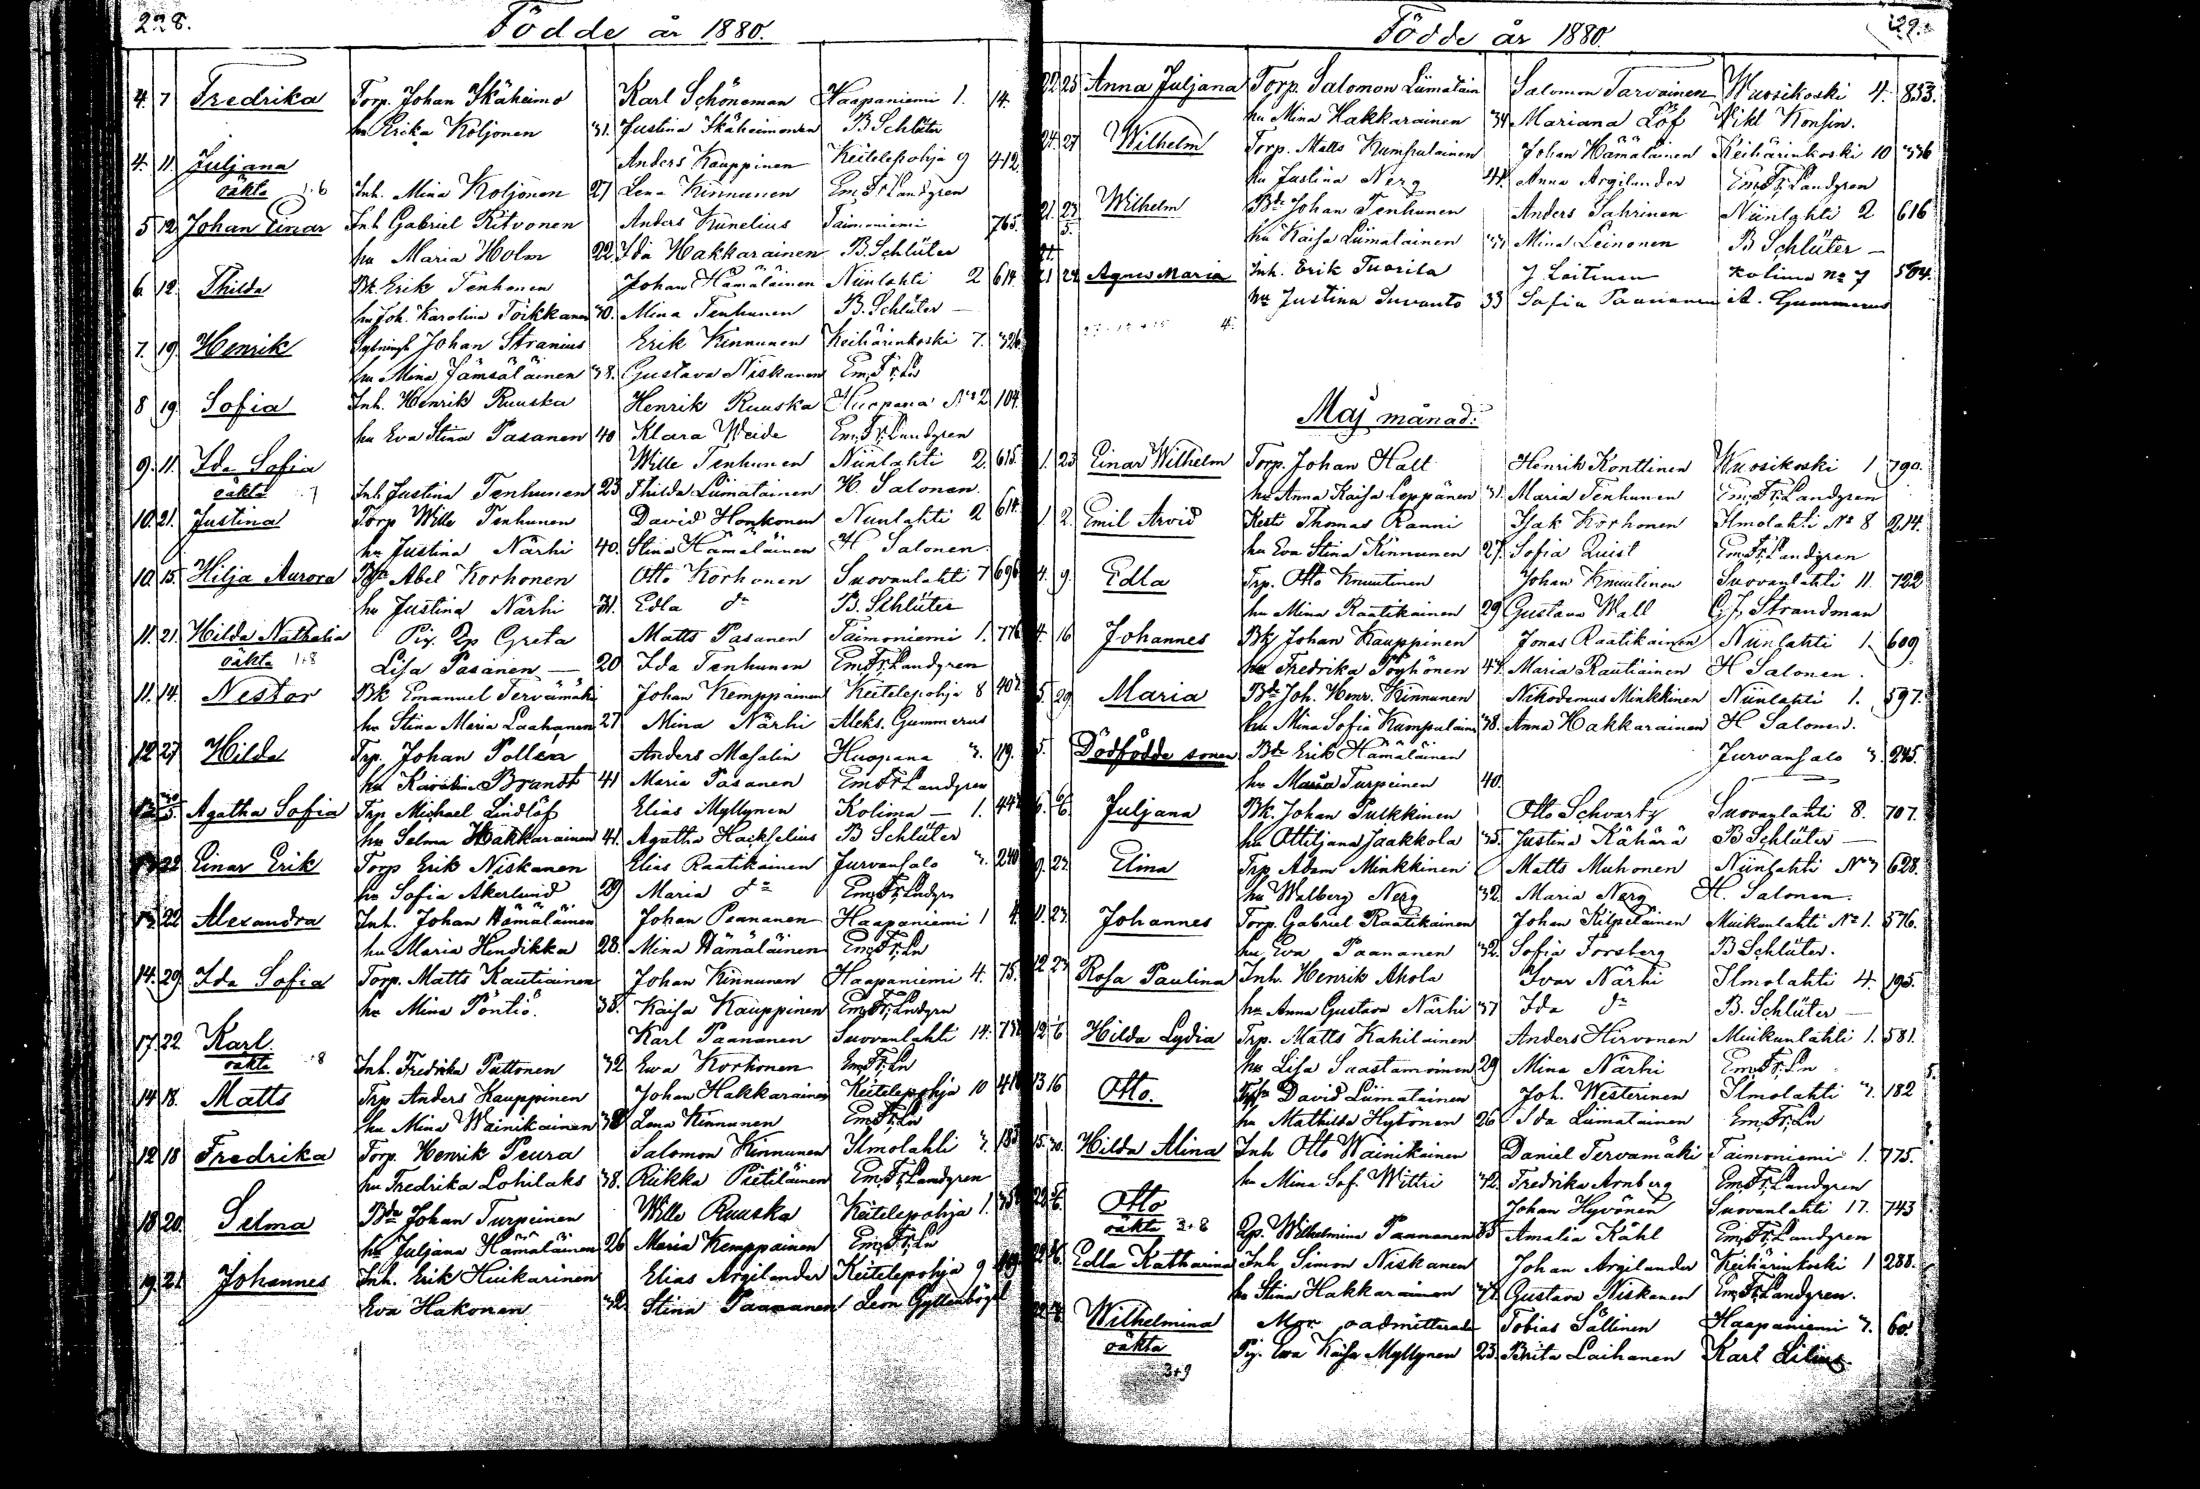 228.
Födde år 1880.
4. 7 Fredrika Torp. Johan Skäheimo Karl Schöneman Haapaniemi 1. 14.
hu Erika Koljonen 31. Justina Skäheimonen B Schlüter
4. 11. Juljana Anders Kauppinen Keitelepohja 9 412
oäkta Inh. Mina Koljonen 27 Lena Kinnunen Em. Fr. Landgren
5 12 Johan Einar Inh Gabriel Ritvonen Anders Kunelius Taimoniemi 765
hu Maria Holm 22 Ida Hakkarainen B. Schlüter
6. 12. Thilda Bk. Erik Tenhunen Johan Hämäläinen Niinlahti 2 614
hu Joh. Karolina Toikkanen 30. Mina Tenhunen B. Schlüter
7. 19. Henrik Johan Stranius Erik Kinnunen Keihärinkoski 7. 326
hu Mina Jämsäläinen 38. Gustava Niskanen Em. Fr. Ln
8 19 Sofia Inh. Henrik Ruuska Henrik Ruuska Huopana No 2 104
hu Eva Stina Pasanen 40 Klara Weide Em. Fr. Landgren
9. 11. Ida Sofia Wille Tenhunen Niinlahti 2. 615.
oäkta Inh. Justina Tenhunen 23 Thilda Liimatainen H. Salonen.
10. 21. Justina Torp Wille Tenhunen David Honkonen Niinlahti 2 614
hu Justina Närhi 40. Stina Hämäläinen H Salonen.
10. 15. Hilja Aurora Abel Korhonen Otto Korhonen Suovanlahti 7 696
hu Justina Närhi 31. Edla do B. Schlüter
11. 21. Hilda Nathalia Pig. Dp Greta Matts Pasanen Taimoniemi 1. 776
oäkta 1+8 Lisa Pasanen — 20 Ida Tenhunen Em. Fr. Landgren
11. 14. Nestor Bk Emanuel Tervämäki Johan Kemppainen Keitelepohja 8 407
hu Stina Maria Laahanen 27 Mina Närhi Aleks. Gummerus
12 27 Hilda Trp. Johan Pollen Anders Masalin Huopana 3. 119.
hu Karolina Brandt 41 Maria Pasanen Em Fr Landgren
Agatha Sofia Trp Michael Lindlöf Elias Myllynen Kolima — 1. 442
hu Selma Hakkarainen 41. Agatha Hackselius B Schlüter
22 Einar Erik Torp Erik Niskanen Elias Raatikainen Jurvansalo 3. 240
hu Sofia Åkerlund 29 Maria do Em. Fr. Lndgrn
13. 22 Alexandra Inh. Johan Hämäläinen Johan Paananen Haapaniemi 1 4.
hu Maria Hendikka 28. Mina Hämäläinen Em. Fr. Ln
14. 29. Ida Sofia Torp. Matts Kautiainen Johan Kinnunen Haapaniemi 4. 75.
hu Mina Pöntiö. 38. Kaisa Kauppinen Em. Fr. Lndgrn
17. 22. Karl Karl Paananen Suovanlahti 14.
oäkta Inh. Fredrika Puttonen 32 Ewa Korhonen Em. Fr. Ln
14 18. Matts Trp Anders Kauppinen Johan Hakkarainen Keitelepohja 10
hu Mina Wainikainen 38 Lena Kinnunen Em. Fr. Ln
12 18 Fredrika Torp. Henrik Peura Salomon Kinnunen Ilmolahti 3. 183
hu Fredrika Lohilaks 38. Riikka Pietiläinen Em. Fr. Landgren
18 20. Selma Bde Johan Turpeinen Wille Ruuska Keitelepohja 1.
hu Juljana Hämäläinen 26 Maria Kemppainen Em. Fr. Ln
19. 21. Johannes Inh. Erik Huikarinen Elias Argilander Keitelepohja 9
Eva Hakonen 32. Stina Paananen Leon Gyllenbögel
Födde år 1880. 229.
22 25 Anna Juljana Torp. Salomon Liimatain Salomon Tarvainen Wuosikoski 4. 833.
hu Mina Hakkarainen 34 Mariana Löf Wikl Konsin.
24. 27 Wilhelm Torp. Matts Kumpulainen Johan Hämäläinen Keihärinkoski 10 336
hu Justina Nerg 41. Anna Argilander Em. Fr. Landgren
21. Wilhelm Bde Johan Tenhunen Anders Sahrinen Niinlahti 2 616
hu Kaisa Liimatainen Mina Leinonen B Schlüter —
21 24 Agnes Maria Inh. Erik Tuorila J Laitinen Kolima No 7 504.
hu Justina Suvanto 33 Sofia Paananen A. Gummerus
Maj månad:
1. 23 Einar Wilhelm Torp. Johan Halt Henrik Konttinen Wuosikoski 1 790.
hu Anna Kaisa Leppänen 31. Maria Tenhunen Em. Fr. Landgren
1. 2. Emil Arvid Kest. Thomas Ranni Isak Korhonen Ilmolahti No 8 214.
hu Eva Stina Kinnunen 27. Sofia Quist Em. Fr. Landgren
4. 9. Edla Trp. Otto Knuutinen Johan Knuutinen Suovanlahti 11. 722
hu Mina Raatikainen 29 Gustava Wall C. J. Strandman
4. 16 Johannes Bk Johan Kauppinen Jonas Raatikainen Niinlahti 1. 609
hu Fredrika Pöyhönen 44. Maria Rautiainen H Salonen.
5. 29 Maria Bde Joh. Henr. Kinnunen Nikodemus Minkkinen Niinlahti 1. 597.
hu Mina Sofia Kumpulain 38. Anna Hakkarainen H Salonen.
5. Dödfödde sonen Bde Erik Hämäläinen Jurvansalo 3. 245.
hu Maria Turpeinen 40.
6. Juljana Bk. Johan Pulkkinen Otto Schvartz Suovanlahti 8. 707.
hu Ottiljana Jaakkola 35. Justina Kähärä B Schlüter —
9. 23. Elina Trp. Adam Minkkinen Matts Muhonen Niinlahti No 3 628.
hu Walberg Nerg 32. Maria Nerg H. Salonen.
23. Johannes Torp. Gabriel Raatikainen Johan Kilpeläinen Muikunlahti No 1. 576.
hu Eva Paananen 32. Sofia Forsberg B Schlüter.
12 23 Rosa Paulina Inh. Henrik Ahola Ivar Närhi Ilmolahti 4. 195.
hu Anna Gustava Närhi 37 Ida do B. Schlüter —
12 Hilda Lydia Trp. Matts Kahilainen Anders Hirvonen Muikunlahti 1. 581.
hu Lisa Saastamoinen 29 Mina Närhi Em. Fr. Ln
13 16 Otto. David Liimatainen Joh. Westerinen Ilmolahti 3. 182
hu Mathilda Hytönen 26 Ida Liimatainen Em. Fr. Ln
15. 30. Hilda Alina Inh Otto Wainikainen Daniel Tervamäki Taimoniemi 1. 775.
hu Mina Sof. Wittri 32. Fredrika Arnberg Em. Fr. Landgren
Otto Johan Hyvönen Suovanlahti 17. 743
oäkta 3+8 Dp. Wilhelmina Paananen 35 Amalia Kåhl Em. Fr. Landgren
Edla Katharina Inh Simon Niskanen Johan Argilander Keihärinkoski 1 288.
hu Stina Hakkarainen Gustava Niskanen Em. Fr. Landgren.
Wilhelmina Mor oadmitterade Tobias Sällinen Haapaniemi 7. 60.
oäkta Pig. Ewa Kaisa Myllynen 23. Brita Laihanen Karl Lilius.
3+9